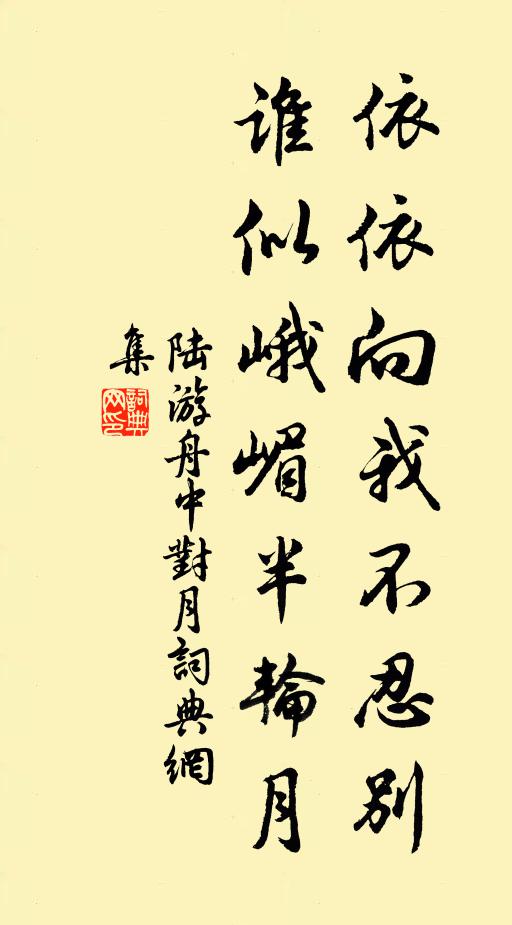 依依向我不忍別
誰似峨嵋半輪月
陸游舟中對月詞典網
集
詞典
网印